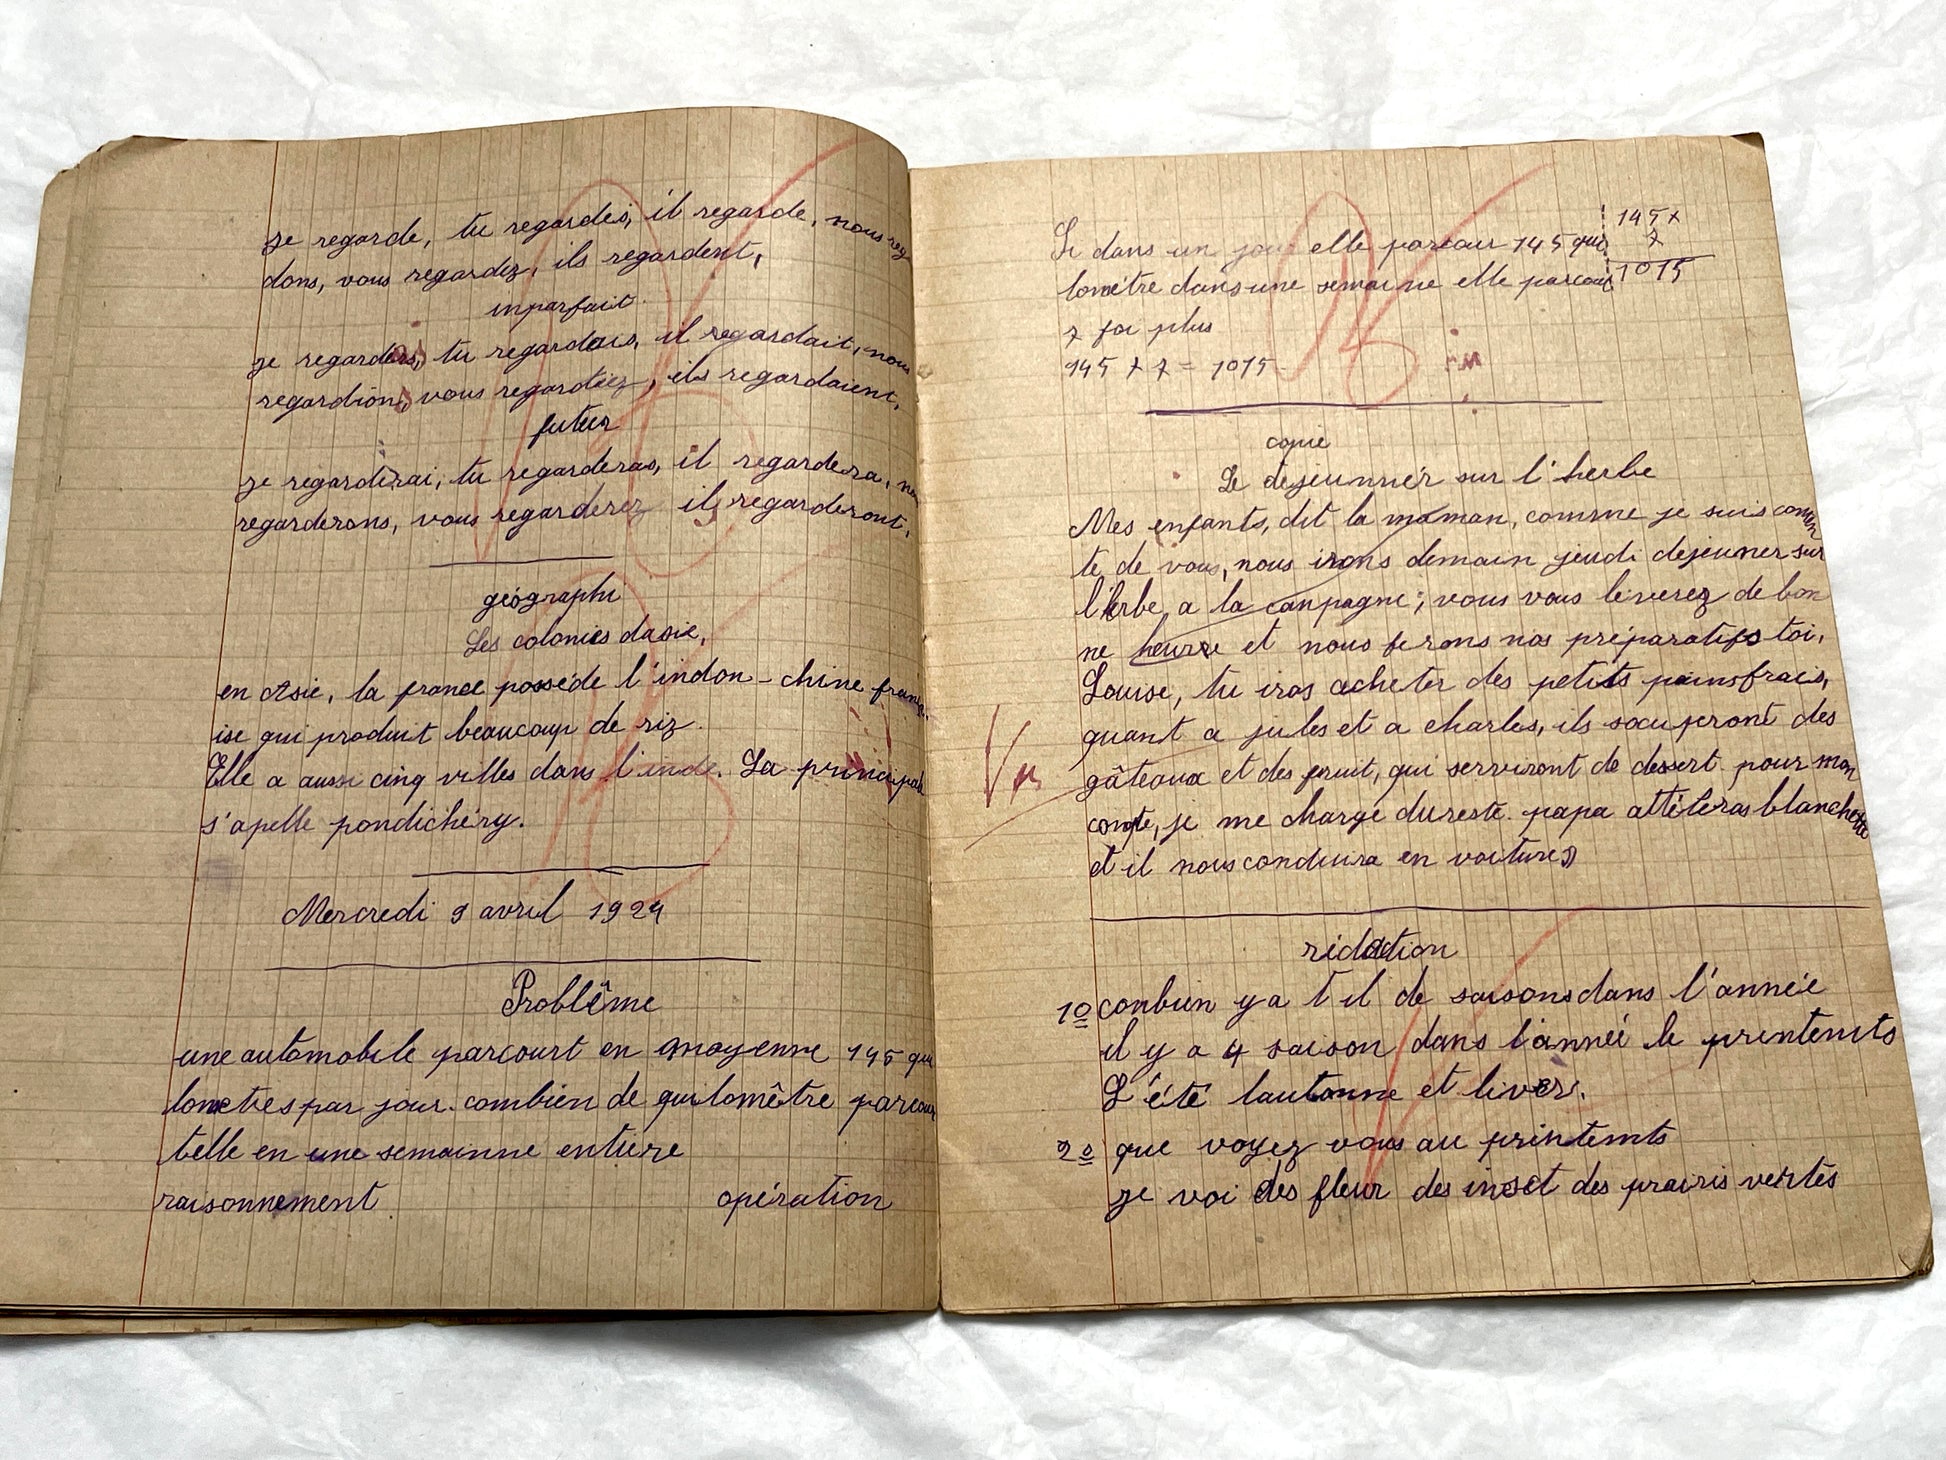 je regarde, tu regardes, il regarde, nous reg
dons, vous regardez, ils regardent,
inparfait
je regardais, tu regardais, il regardait, nous
regardions, vous regardiez, ils regardaient,
futur
je regarderai, tu regarderas, il regardera, nou
regarderons, vous regarderez ils regarderont,
géographi
Les colonies dasie,
en Asie, la france possède l'indon-chine franç
ise qui produit beaucoup de riz.
Elle a aussi cinq villes dans l'inde. La principal
s'apelle pondichéry.
Mercredi 9 avril 1924
Problême
une automobile parcourt en moyenne 145 qui
lometres par jour. combien de quilomêtre parcour
telle en une semainne entière
raisonnement opération
Si dans un jour elle parcour 145 qui
lomètre dans une semaine elle parcour
7 foi plus
145 x 7 = 1015
145 x
7
1015
copie
Le déjeunnér sur l'herbe
Mes enfants, dit la maman, comme je suis conten
te de vous, nous irons demain jeudi dejeuner sur
l'herbe, a la canpagne; vous vous leverez de bon
ne heure et nous ferons nos préparatifs toi,
Louise, tu iras acheter des petits pains frais,
quant a jules et a charles, ils soccuperont des
gâteaux et des fruit, qui serviront de dessert. pour mon
compte, je me charge du reste. papa attéleras blanchette
et il nous conduira en voiture»
Vu
rédaction
1º conbien y a t il de saisons dans l'année
il y a 4 saison dans l'année le printemts
L'été lautonne et liver.
2º que voyez vous au printemts
je voi des fleur des inset des prairis vertes